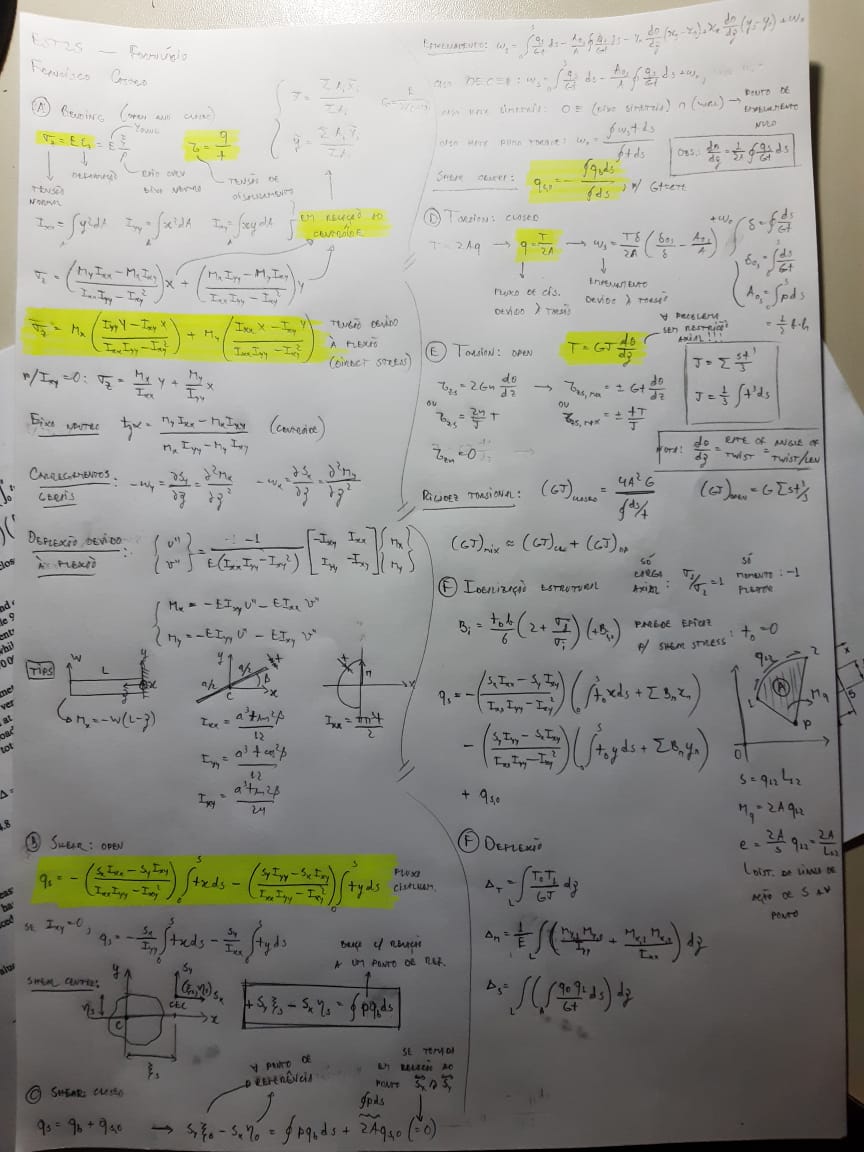 EST25 — Formulário
Francisco
(A) BENDING (OPEN AND CLOSED)
YOUNG
σz = Eεz = E ξ/ρ
τ = q/t
x̄ = ΣAi x̄i / ΣAi
ȳ = ΣAi ȳi / ΣAi
DEFORMAÇÃO
EIXO NEUTRO
TENSÃO NORMAL
TENSÃO DE CISALHAMENTO
Ixx = ∫y²dA Iyy = ∫x²dA Ixy = ∫xydA
EM RELAÇÃO AO CENTRÓIDE
σz = ((My Ixx − Mx Ixy)/(Ixx Iyy − Ixy²)) x + ((Mx Iyy − My Ixy)/(Ixx Iyy − Ixy²)) y
σz = Mx ((Iyy y − Ixy x)/(Ixx Iyy − Ixy²)) + My ((Ixx x − Ixy y)/(Ixx Iyy − Ixy²))
TENSÃO DEVIDO À FLEXÃO (DIRECT STRESS)
p/ Ixy = 0: σz = Mx/Ixx y + My/Iyy x
EIXO NEUTRO tgα = (My Ixx − Mx Ixy)/(Mx Iyy − My Ixy) (CENTRÓIDE)
CARREGAMENTOS GERAIS : −wy = ∂Sy/∂z = ∂²Mx/∂z² −wx = ∂Sx/∂z = ∂²My/∂z²
DEFLEXÃO DEVIDO À FLEXÃO : {u'' v''} = −1/(E(Ixx Iyy − Ixy²)) [−Ixy Ixx Iyy −Ixy] {Mx My}
Mx = −EIxy u'' − EIxx v''
My = −EIyy u'' − EIxy v''
TIPS
W L y z
Mx = −W(L−z)
y a/2 a/2 t β C x
Ixx = a³t sen²β/12
Iyy = a³t cos²β/12
Ixy = a³t sen2β/24
t r x
Ixx = πr³t/2
(B) SHEAR: OPEN
qs = −((Sx Ixx − Sy Ixy)/(Ixx Iyy − Ixy²)) ∫₀ˢ tx ds − ((Sy Iyy − Sx Ixy)/(Ixx Iyy − Ixy²)) ∫₀ˢ ty ds
FLUXO CISALHAM.
SE Ixy = 0, qs = −Sx/Iyy ∫₀ˢ tx ds − Sy/Ixx ∫₀ˢ ty ds
BRAÇO C/ RELAÇÃO A UM PONTO DE REF.
SHEAR CENTER:
y Sy Sx ηs C x ξs
+Sy ξs − Sx ηs = ∮ p qb ds
∀ PONTO DE REFERÊNCIA
SE TOMADA EM RELAÇÃO AO PONTO Sx ∩ Sy
(C) SHEAR: CLOSED
∮pds
qs = qb + qs,0 → Sy ξ0 − Sx η0 = ∮ p qb ds + 2A qs,0 (=0)
EMPENAMENTO: ws = ∫₀ˢ qs/Gt ds − A0s/A ∮ qs/Gt ds − yR dθ/dz (xs − x0) + xR dθ/dz (ys − y0) + w0
ws = ∫₀ˢ qs/Gt ds − A0s/A ∮ qs/Gt ds + w0
O ≡ (EIXO SIMETRIA) ∩ (WALL) → PONTO DE EMPENAMENTO NULO
w0 = ∮ws t ds / ∮t ds
OBS: dθ/dz = 1/2A ∮ qs/Gt ds
SHEAR CENTER: qs,0 = −∮qb ds / ∮ds, p/ Gt = cte
(D) TORSION: CLOSED
T = 2Aq → q = T/2A → ws = Tδ/2A (δ0s/δ − A0s/A) + w0
δ = ∮ds/Gt
δ0s = ∫ds/Gt
A0s = ∫pds
= 1/2 b·h
FLUXO DE CIS. DEVIDO À TORSÃO
EMPENAMENTO DEVIDO À TORSÃO
∀ PROBLEMA SEM RESTRIÇÃO AXIAL!!!
(E) TORSION: OPEN T = GJ dθ/dz
τzs = 2Gn dθ/dz → τzs,max = ± Gt dθ/dz
OU OU
τzs = 2n/J T τzs,max = ± tT/J
τzn = 0
J = Σ st³/3
J = 1/3 ∫t³ds
NOTE: dθ/dz = RATE OF TWIST = ANGLE OF TWIST/LEN
RIGIDEZ TORSIONAL: (GJ)CLOSED = 4A²G/∮ds/t (GJ)OPEN = GΣst³/3
(GJ)mix ≈ (GJ)CL + (GJ)OP
(F) IDEALIZAÇÃO ESTRUTURAL
SÓ CARGA AXIAL : σ1/σ2 = 1 SÓ MOMENTO FLETOR : −1
Bi = tD b/6 (2 + σj/σi) (+Bi,0) PAREDE EFICAZ P/ SHEAR STRESS : tD = 0
qs = −((Sx Ixx − Sy Ixy)/(Ixx Iyy − Ixy²)) (∫₀ˢ tD x ds + ΣBr xr)
− ((Sy Iyy − Sx Ixy)/(Ixx Iyy − Ixy²)) (∫₀ˢ tD y ds + ΣBr yr)
+ qs,0
q12 2 1 A Mq P O S
S = q12 L12
Mq = 2A q12
e = 2A/S q12 = 2A/L12
DIST. DA LINHA DE AÇÃO DE S AO PONTO
(F) DEFLEXÃO
ΔT = ∫L T0 T1/GJ dz
ΔM = 1/E ∫L (My,1 My,0/Iyy + Mx,1 Mx,0/Ixx) dz
ΔS = ∫L (∫A q0 q1/Gt ds) dz